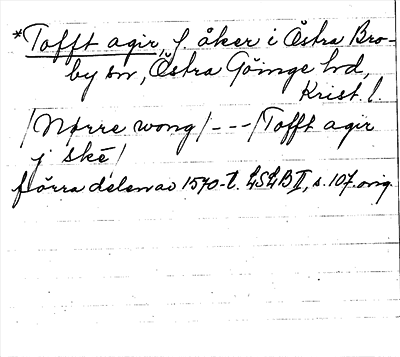 *Tofft agir, f. åker i Östra Bro-
by sn, Östra Göinge hd,
Krist. l.
/Nørre wong/---/Tofft agir
j ske/
förra delen av 1570-t. LSLB II, s. 107. orig.